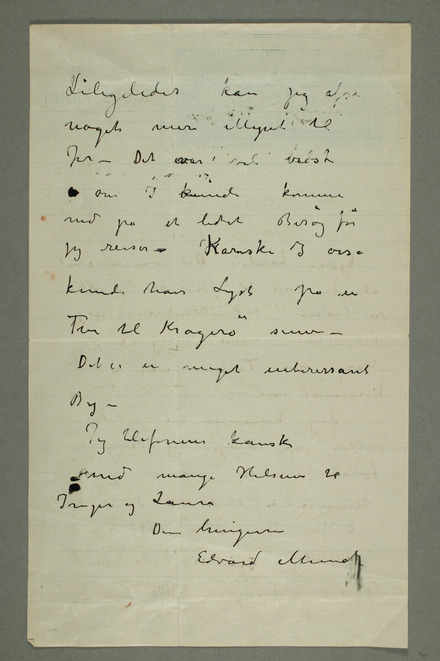 Ligeledes kan jeg afse
noget mere illynt til
Jer – Det var vel bedst
om I kunde komme
ned på et lidet Besøg før
jeg reiser – Kanske I osså
kunde have Lyst på en
Tur til Kragerø senere –
Det er en meget interessant
By –
Jeg telefonerer kanske
med mange Hilsener til
Inger og Laura
Din hengivne
Edvard Munch